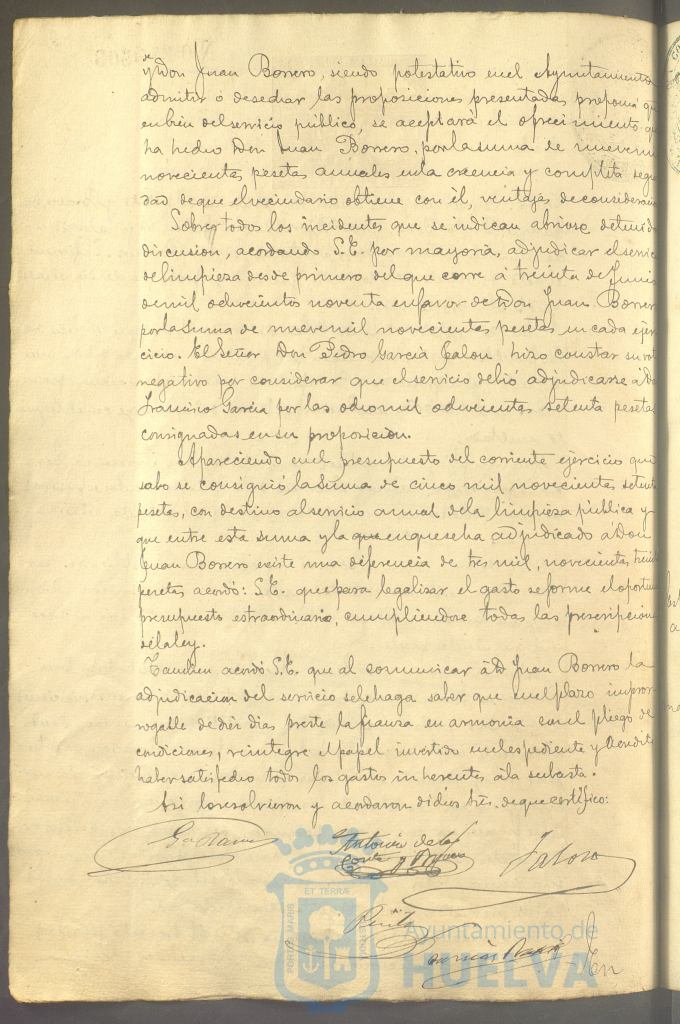 y Don Juan Borrero, siendo potestativo en el Ayuntamiento
admitir ó desechar las proposiciones presentadas propone que
en bien del servicio público, se aceptará el ofrecimiento que
ha hecho Don Juan Borrero, por la suma de nueve mil
novecientas pesetas anuales en la creencia y completa segu
dad de que el vecindario obtiene con él, ventajas de consideración
Sobre todos los incidentes que se indican abriose detenida
discusion, acordando S.E. por mayoría, adjudicar el servicio
de limpieza desde primero del que corre á treinta de Junio
de mil ochocientos noventa en favor de Don Juan Borrero
por la suma de nueve mil novecientas pesetas en cada ejer
cicio. El Señor Don Pedro García Jalon hizo constar su voto
negativo por considerar que el servicio debió adjudicarse á Dn
Francisco García por las ocho mil ochocientas setenta pesetas
consignadas en su proposicion.
Apareciendo en el presupuesto del corriente ejercicio que
sabo se consignió la suma de cinco mil novecientas setenta
pesetas, con destino al servicio anual de la limpieza pública y
que entre esta suma y la que en que se ha adjudicado á Don
Juan Borrero existe una diferencia de tres mil, novecientas treinta
pesetas acordó: S.E. que para legalizar el gasto se forme el oportuno
presupuesto extraordinario, cumpliendose todas las prescripciones
de la ley.
Tambien acordó S.E. que al comunicar á D Juan Borrero la
adjudicacion del servicio se le haga saber que en el plazo impror
rogable de diez dias preste la fianza en armonia con el pliego de
condiciones, reintegre el papel invertido en el espediente y acredite
haber satisfecho todos los gastos inherentes á la subasta.
Asi lo resolvieron y acordaron dichos Sres. de que certifico:
Antonio de la
Corte y
Jalon
ET TERRÆ
PORTUS MARIS
CUSTODIA
Ayuntamiento de
HUELVA